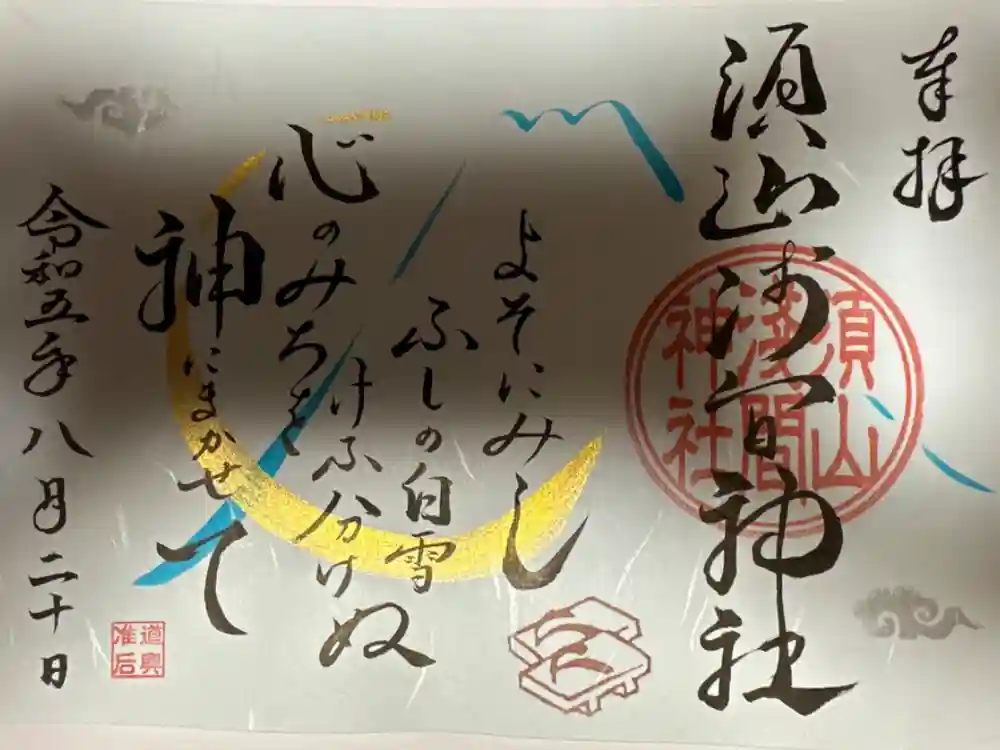 奉拝
須山浅間神社
須山
淺間
神社
よそにみし
ふしの白雪
けふ分けぬ
心のみちを
神にまかせて
令和五年八月二十日
道興
准后